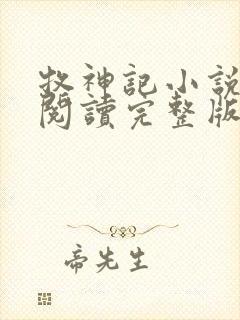 牧神記小說
閱讀完整版
帝先生